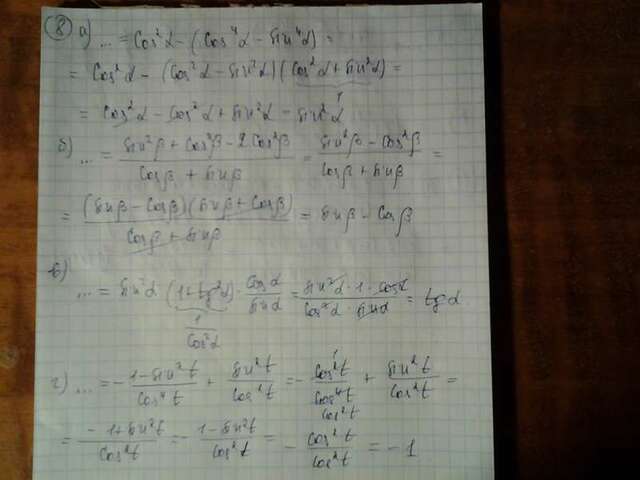 ⑧ а) ... = Cos²α - (Cos⁴α - Sin⁴α) =
= Cos²α - (Cos²α - Sin²α)(Cos²α + Sin²α) =
1
= Cos²α - Cos²α + Sin²α = Sin²α
б) ... = (Sin²β + Cos²β - 2Cos²β)/(Cosβ + Sinβ) = (Sin²β - Cos²β)/(Cosβ + Sinβ) =
= ((Sinβ - Cosβ)(Sinβ + Cosβ))/(Cosβ + Sinβ) = Sinβ - Cosβ
в) ... = Sin²α (1 + tg²α) · Cosα/Sinα = (Sin²α · 1 · Cosα)/(Cos²α · Sinα) = tgα
1/Cos²α
г) ... = - (1 - Sin²t)/Cos⁴t + Sin²t/Cos²t = - Cos²t/Cos⁴t + Sin²t/Cos²t =
1
Cos²t
= (-1 + Sin²t)/Cos²t = - (1 - Sin²t)/Cos²t = - Cos²t/Cos²t = -1